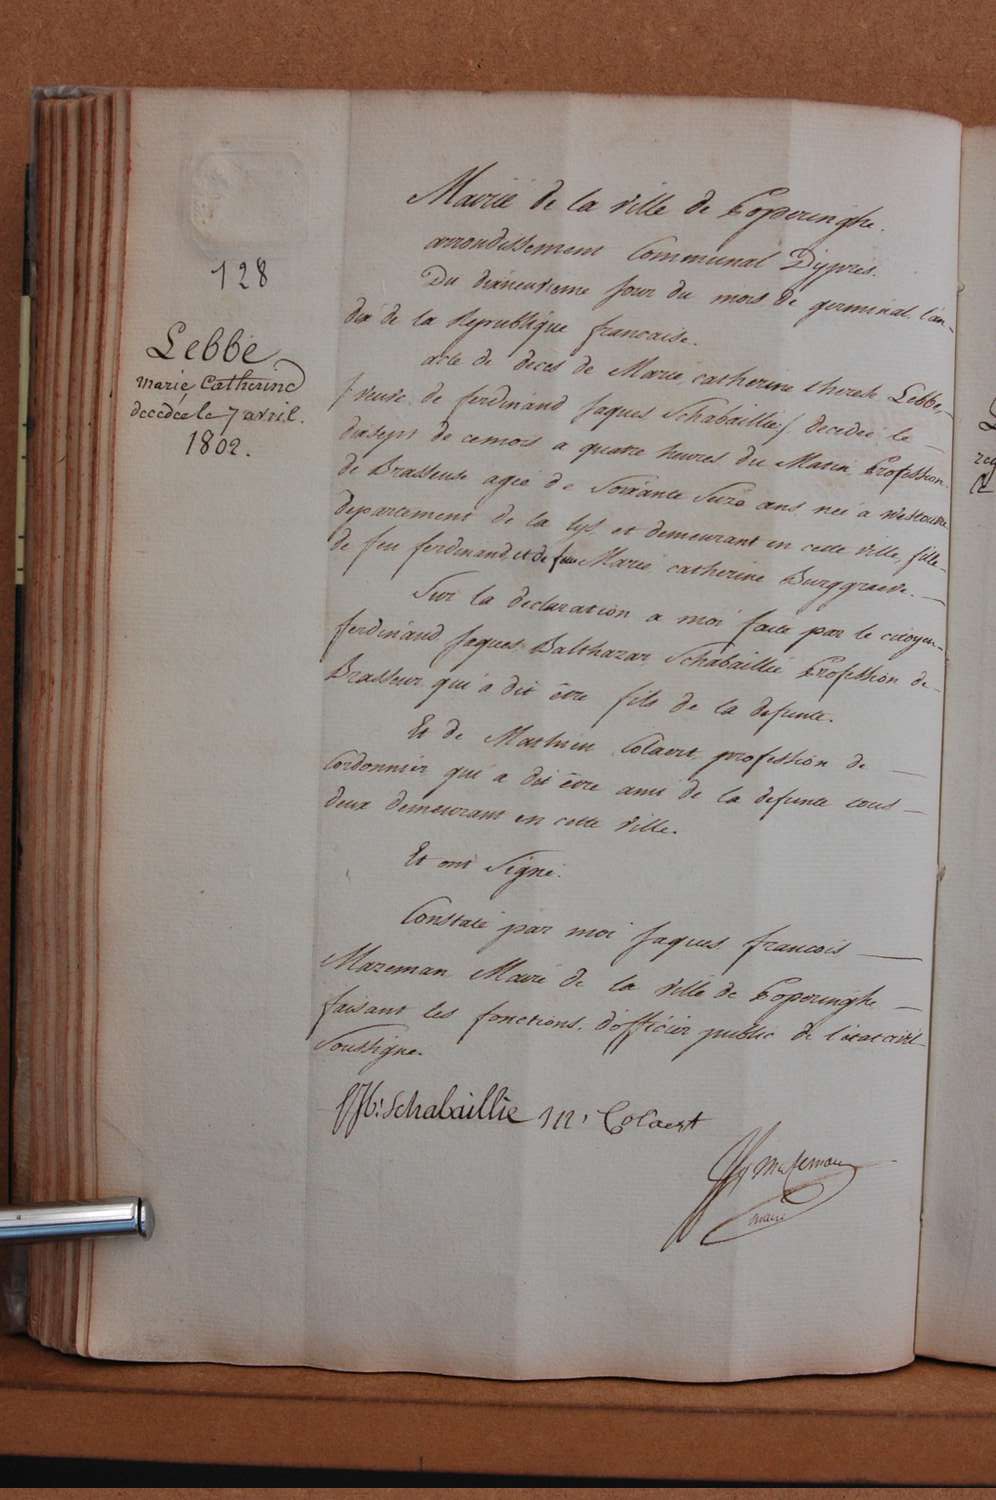 128
Lebbe
marie Catherine
decedée le 7 avril.
1802.
Mairie de la ville de Poperinghe.
arrondissement Communal D'ypres.
Du dixneuvieme jour du mois de germinal l'an
dix de la Republique francaise.
acte de deces de Marie catherine therese Lebbe,
/ veuve de ferdinand Jaques Schabaillie / decedée le
dixsept de ce mois a quatre heures du Matin, Profession
de Brasseuse agée de Soixante Seize ans, née a Westoutre
departement de la Lys, et demeurant en cette ville, fille
de feu ferdinand, et de feue Marie catherine Burggraeve.
Sur la declaration a moi faite par le citoyen
ferdinand Jaques Balthazar Schabaillie Profession de
Brasseur qui a dit être fils de la defunte.
Et de Mathieu Colaert profession de
Cordonnier qui a dit être ami de la defunte tous
deux demeurant en cette ville.
Et ont Signé.
Constaté par moi Jaques francois
Mazeman Maire de la ville de Poperinghe
faisant les fonctions d'officier public de l'état civil
Soussigné.
Schabaillie m, Colaert
Mazeman
maire